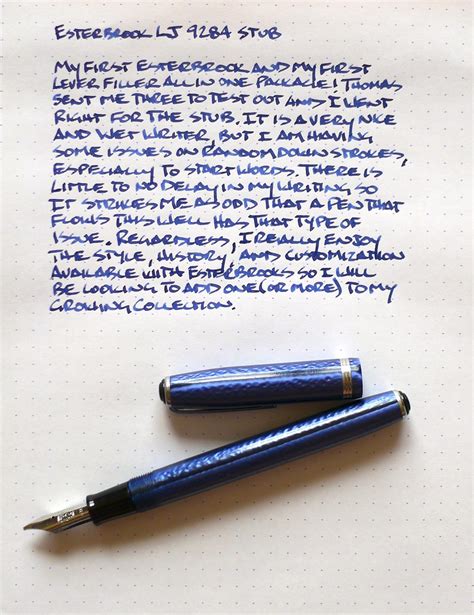 ESTERBROOK LJ 9284 STUB
MY FIRST ESTERBROOK AND MY FIRST
LEVER FILLER ALL IN ONE PACKAGE! THOMAS
SENT ME THREE TO TEST OUT AND I WENT
RIGHT FOR THE STUB. IT IS A VERY NICE
AND WET WRITER, BUT I AM HAVING
SOME ISSUES ON RANDOM DOWN STROKES,
ESPECIALLY TO START WORDS. THERE IS
LITTLE TO NO DELAY IN MY WRITING SO
IT STRIKES ME AS ODD THAT A PEN THAT
FLOWS THIS WELL HAS THAT TYPE OF
ISSUE. REGARDLESS, I REALLY ENJOY
THE STYLE, HISTORY, AND CUSTOMIZATION
AVAILABLE WITH ESTERBROOKS SO I WILL
BE LOOKING TO ADD ONE (OR MORE) TO MY
GROWING COLLECTION.